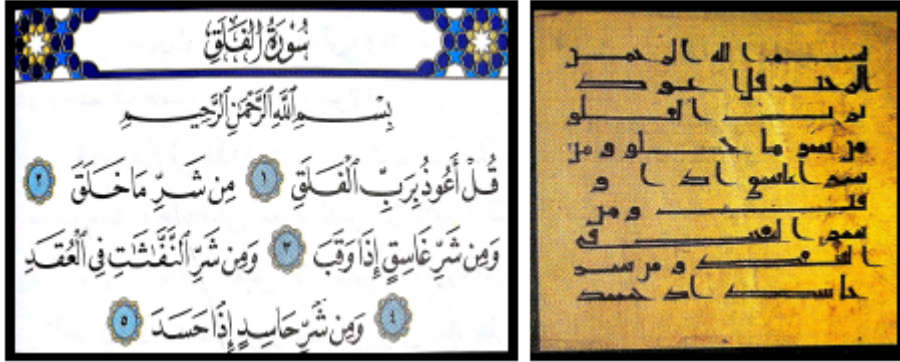 سُورَةُ الْفَلَقِ
بِسْمِ ٱللَّهِ ٱلرَّحْمَٰنِ ٱلرَّحِيمِ
قُلْ أَعُوذُ بِرَبِّ ٱلْفَلَقِ ١ مِن شَرِّ مَا خَلَقَ ٢
وَمِن شَرِّ غَاسِقٍ إِذَا وَقَبَ ٣ وَمِن شَرِّ ٱلنَّفَّٰثَٰتِ فِى ٱلْعُقَدِ
٤ وَمِن شَرِّ حَاسِدٍ إِذَا حَسَدَ ٥
بسم الله الرحمن
الرحيم قل اعوذ
برب الفلق
من شر ما خلق و من
شر غاسق اذا و
قب و من
شر النفثت في
العقد و من شر
حاسد اذا حسد